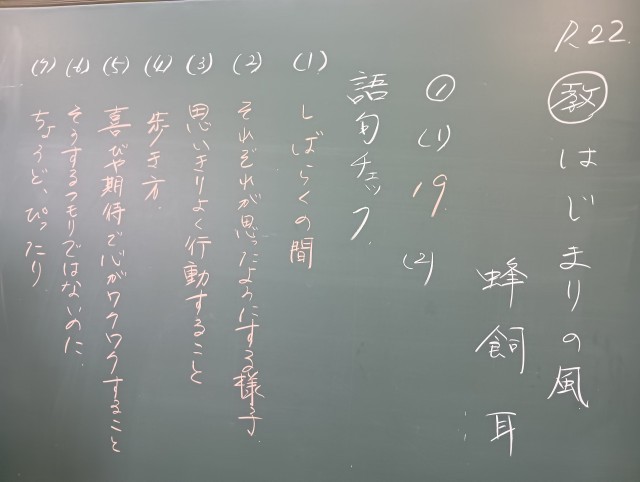 P.22
教 はじまりの風
蜂飼耳
① (1) 19. (2)
語句チェック
(1) しばらくの間
(2) それぞれが思ったようにする様子.
(3) 思いきりよく行動すること
(4) 歩き方.
(5) 喜びや期待で心がワクワクすること
(6) そうするつもりではないのに.
(7) ちょうど、ぴったり